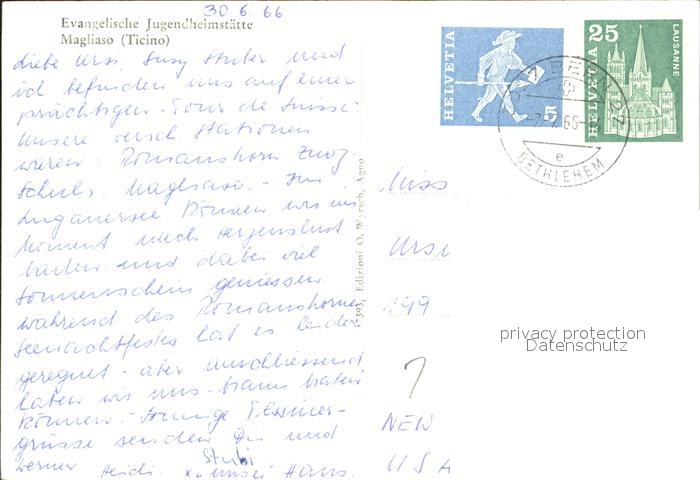 30.6.66
Evangelische Jugendheimstätte
Magliaso (Ticino)
Liebe Urs, Susy Stuber und
ich befinden uns auf einer
prächtigen Tour de Suisse.
Unsere versch. Stationen
waren: Romanshorn, Zuoz,
Schuls, Magliaso. - Im
Luganersee können wir im
Moment nach Herzenslust
baden und dabei viel
Sonnenschein geniessen.
während des Romanshorner
Seenachtfestes hat es leider
geregnet - aber anschliessend
haben wir uns baden
können. - Sonnige Tessiner-
grüsse senden Dir und
Werner Heidi Hans.
Stubi
393, Edizioni O. Wyrsch, Agno
HELVETIA
5
25
HELVETIA
LAUSANNE
BERN 27
65
e
BETHLEHEM
Miss
Ursi
199
privacy protection
Datenschutz
NEW
USA